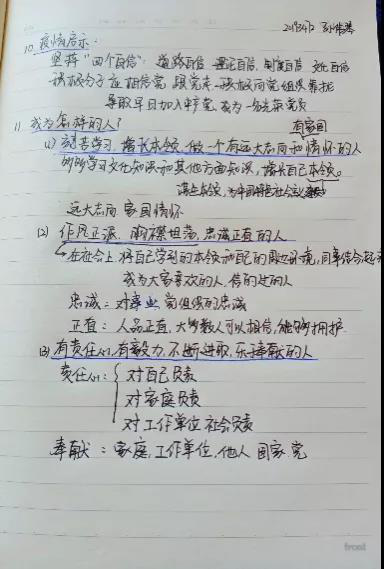 10. 疫情启示:
坚持"四个自信" 道路自信 理论自信 制度自信 文化自信
积极分子应相信党 跟党走 积极向党组织靠拢
争取早日加入中产党, 成为一名光荣党员
11. 成为怎样的人?
有家国
(1) 刻苦学习, 增长本领, 做一个有远大志向和情怀的人
努力学习文化知识和其他方面知识, 增长自己本领。
远大志向 家国情怀
(2) 作风正派、光明磊落, 忠诚正直的人
在社会上 将自己学到的本领
成为大家喜欢的人, 信的过的人
忠诚: 对事业, 党组织的忠诚
正直: 人品正直, 大多数人可以相信, 能够拥护
(3) 有责任心, 有毅力, 不断进取, 乐于奉献的人
责任心: { 对自己负责
对家庭负责
对工作单位 社会负责
奉献: 家庭, 工作单位, 他人 国家 党